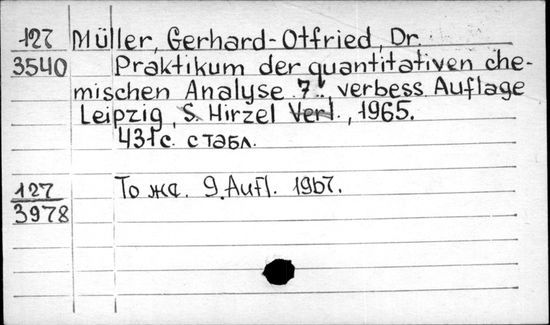 127 Müller, Gerhard-Otfried, Dr.
3540 Praktikum der quantitativen che-
mischen Analyse 7. verbess Auflage
Leipzig, S. Hirzel Verl., 1965.
431 с. с табл.
127 То же. 9. Aufl. 1967.
3978